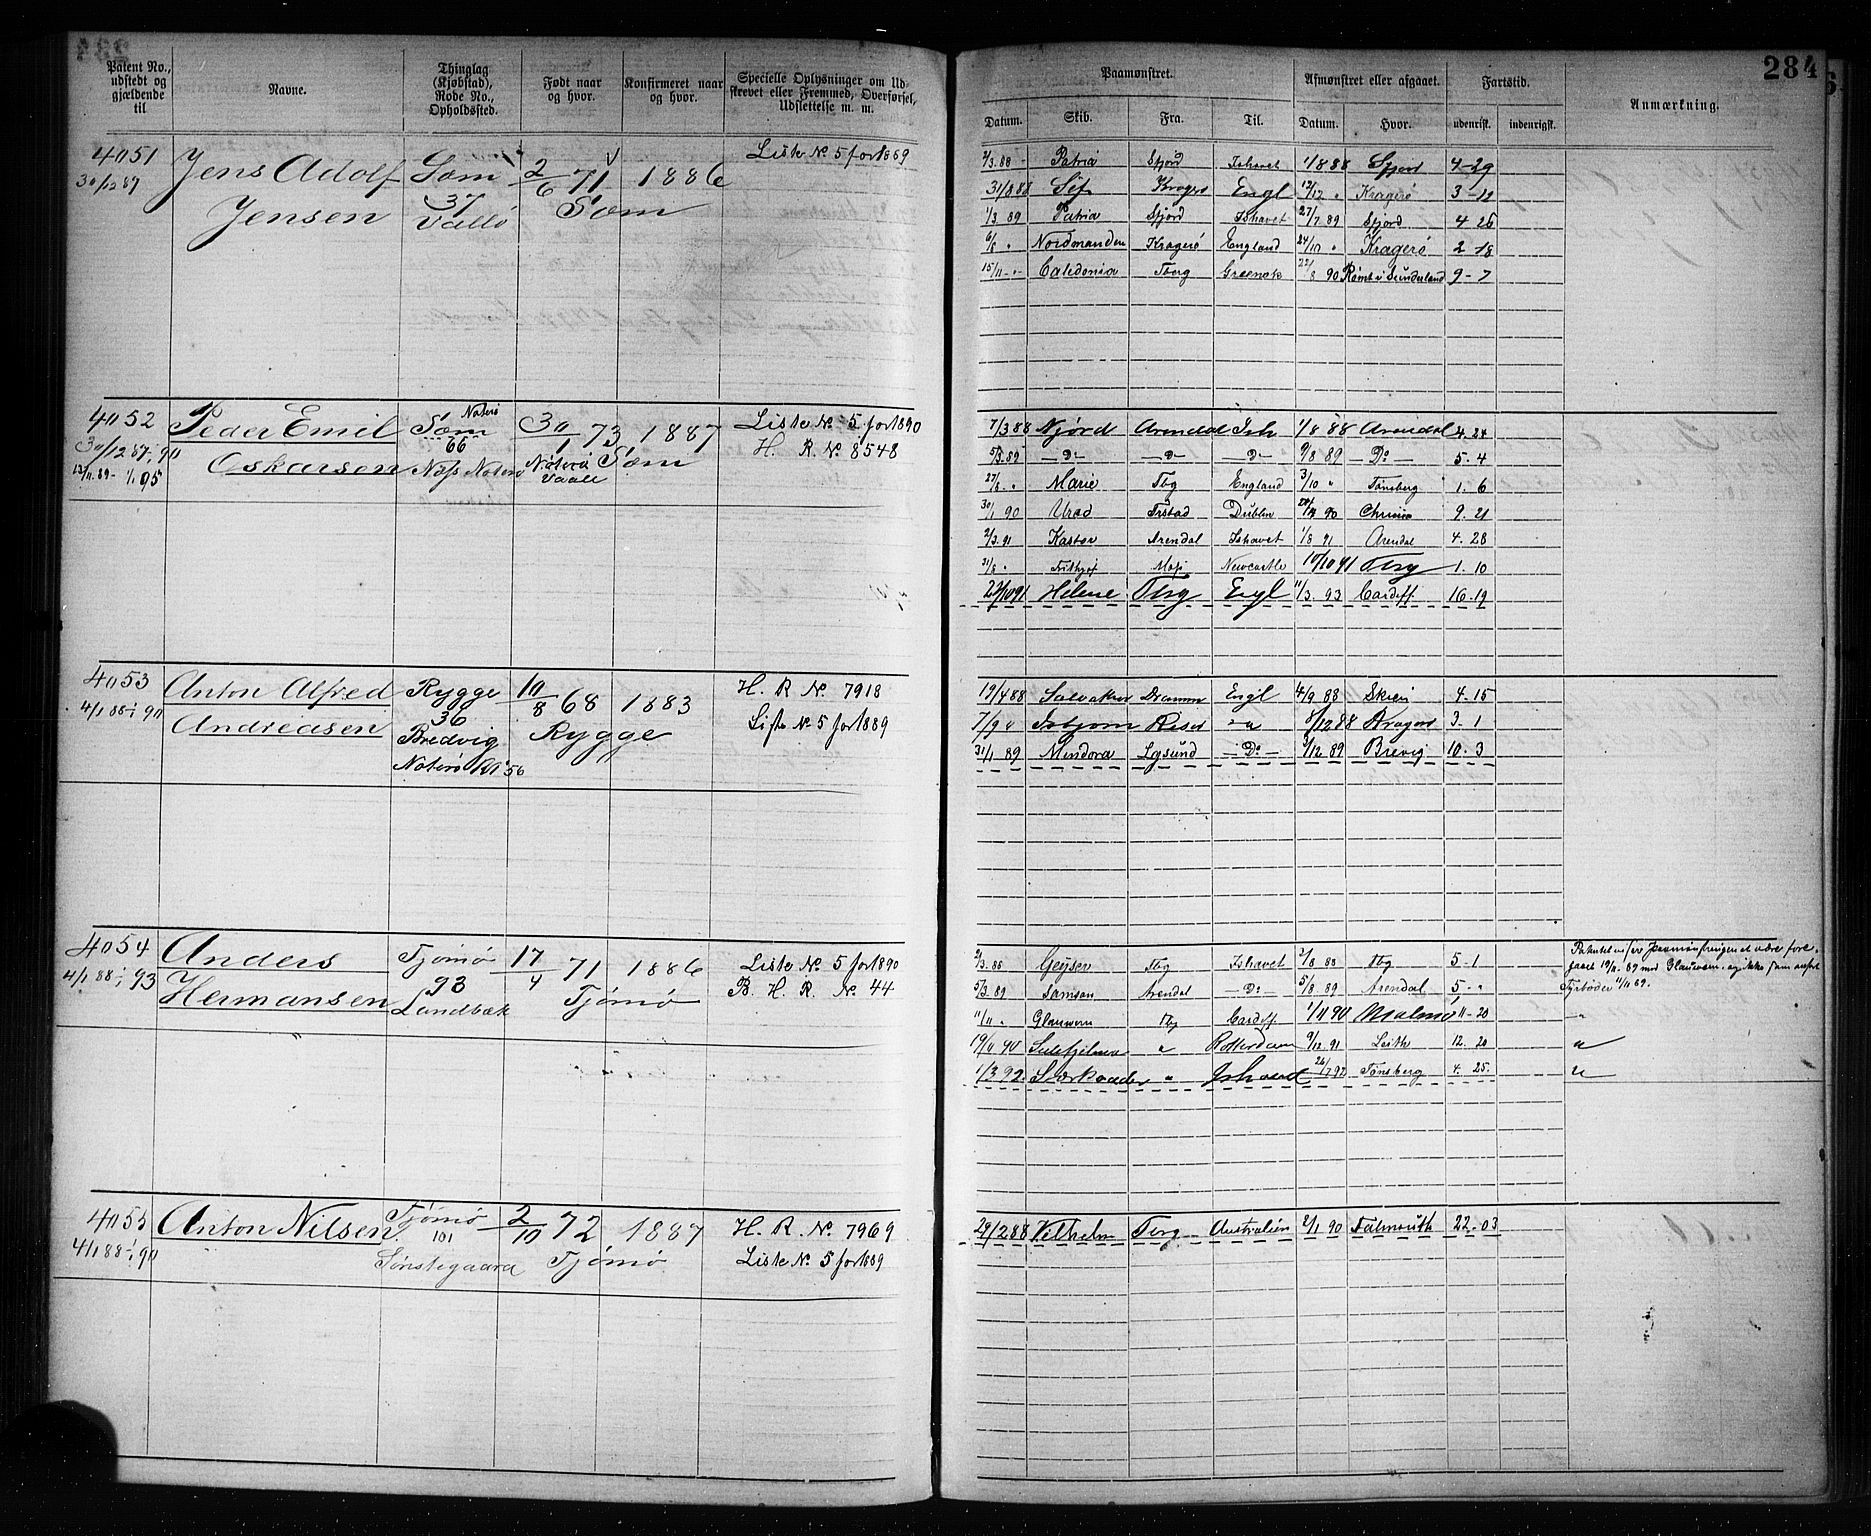 284
Patent No., udstedt og gjældende til
Navne.
Thinglag (Kjøbstad), Rode No., Opholdssted.
Født naar og hvor.
Konfirmeret naar og hvor.
Specielle Oplysninger om Udskrevet eller Fremmed, Overførsel, Udslettelse m. m.
Paamønstret.
Datum.
Skib.
Fra.
Til.
Afmønstret eller afgaaet.
Datum.
Hvor.
Fartstid.
udenrigsk.
indenrigsk.
Anmærkning.
4051 Jens Adolf Sæm 2/6 71 1886 Liste No 5 for 1889
30/12 87 Jensen 37 Sæm
Vallø
Patria Sfjord Ishavet 1/8 88 Sfjord 4-29
31/8 88 Sif Kragerø Engl Kragerø 3-12
1/3 89 Patria Sfjord Ishavet 27/7 89 Sfjord 4 26
Nordmanden Kragerø England Kragerø 2 18
15/11 Caledonia Tbrg Greenok 22/8 90 Rømt i Sunderland 9-7
4052 Peder Emil Sæm 30/1 73 1887 Liste No 5 for 1890
30/12 87-90 Oskarsen 66 Nøterø Sæm H. R. No 8548
13/11 89 - 1/1 95 Næss Nøterø
7/3 88 Njørd Arendal Ish 1/8 88 Arendal 4.24
5/3 89 Do Do Do 9/8 89 Do 5.4
27/8 " Marie Tbg England 3/10 " Tønsberg 1.6
30/1 90 Frstad Dublin 90 9.21
2/3 91 Kastor Arendal Ishavet 1/8 91 Arendal 4.28
31/8 " Moss Newcastle 10/10 91 Tbrg 1.10
Helene Tbrg Engl 11/3 93 Cardiff 16-19
4053 Anton Alfred Rygge 10/8 68 1883 H. R No 7918
4/1 88 - 90 Andreasen 36 Rygge Liste No 5 for 1889
Bredvig
Nøterø
19/4 88 Salvator Dramm Engl 4/9 88 Skien 4-15
Isbjørn Risør 8/12 88 3-1
31/1 89 Mindora Lgsund Do 3/12 89 Brevig 10.3
4054 Anders Tjømø 17/4 71 1886 Liste No 5 for 1890
4/1 88 - 93 Hermansen 93 Tjømø B. H. R. No 44
Sundbæk
2/3 88 Geysen Tbg Ishavet 2/8 88 Tbg 5-1
5/3 89 Samson Arendal Do 5/8 89 Arendal 5-"
11/11 " Glauwern Tbg Cardiff 1/11 90 Malmø 11-20
19/11 90 " Rotterdam 9/12 91 Leith 12.20
1/3 92 " Ishavet 26/7 92 Tønsberg 4.25.
4055 Anton Nilsen Tjømø 2/10 72 1887 H. R. No. 7969
4/1 88 - 90 101 Tjømø Liste No 5 for 1889
Sønstegaard
29/2 88 Vilhelm Tbrg Australien 2/1 90 Falmouth 22-03